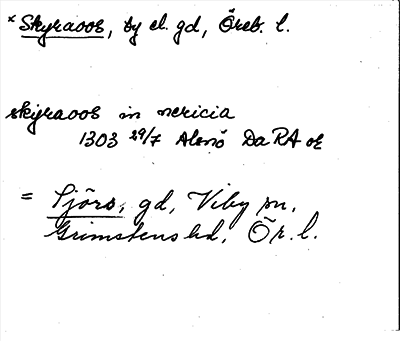 * Skyraoos, by el. gd, Öreb. l.
skyraoos in nericia
1303 29/7 Alsnö Da RA or
= Tjöro, gd, Viby sn,
Grimstens hd, Ör. l.